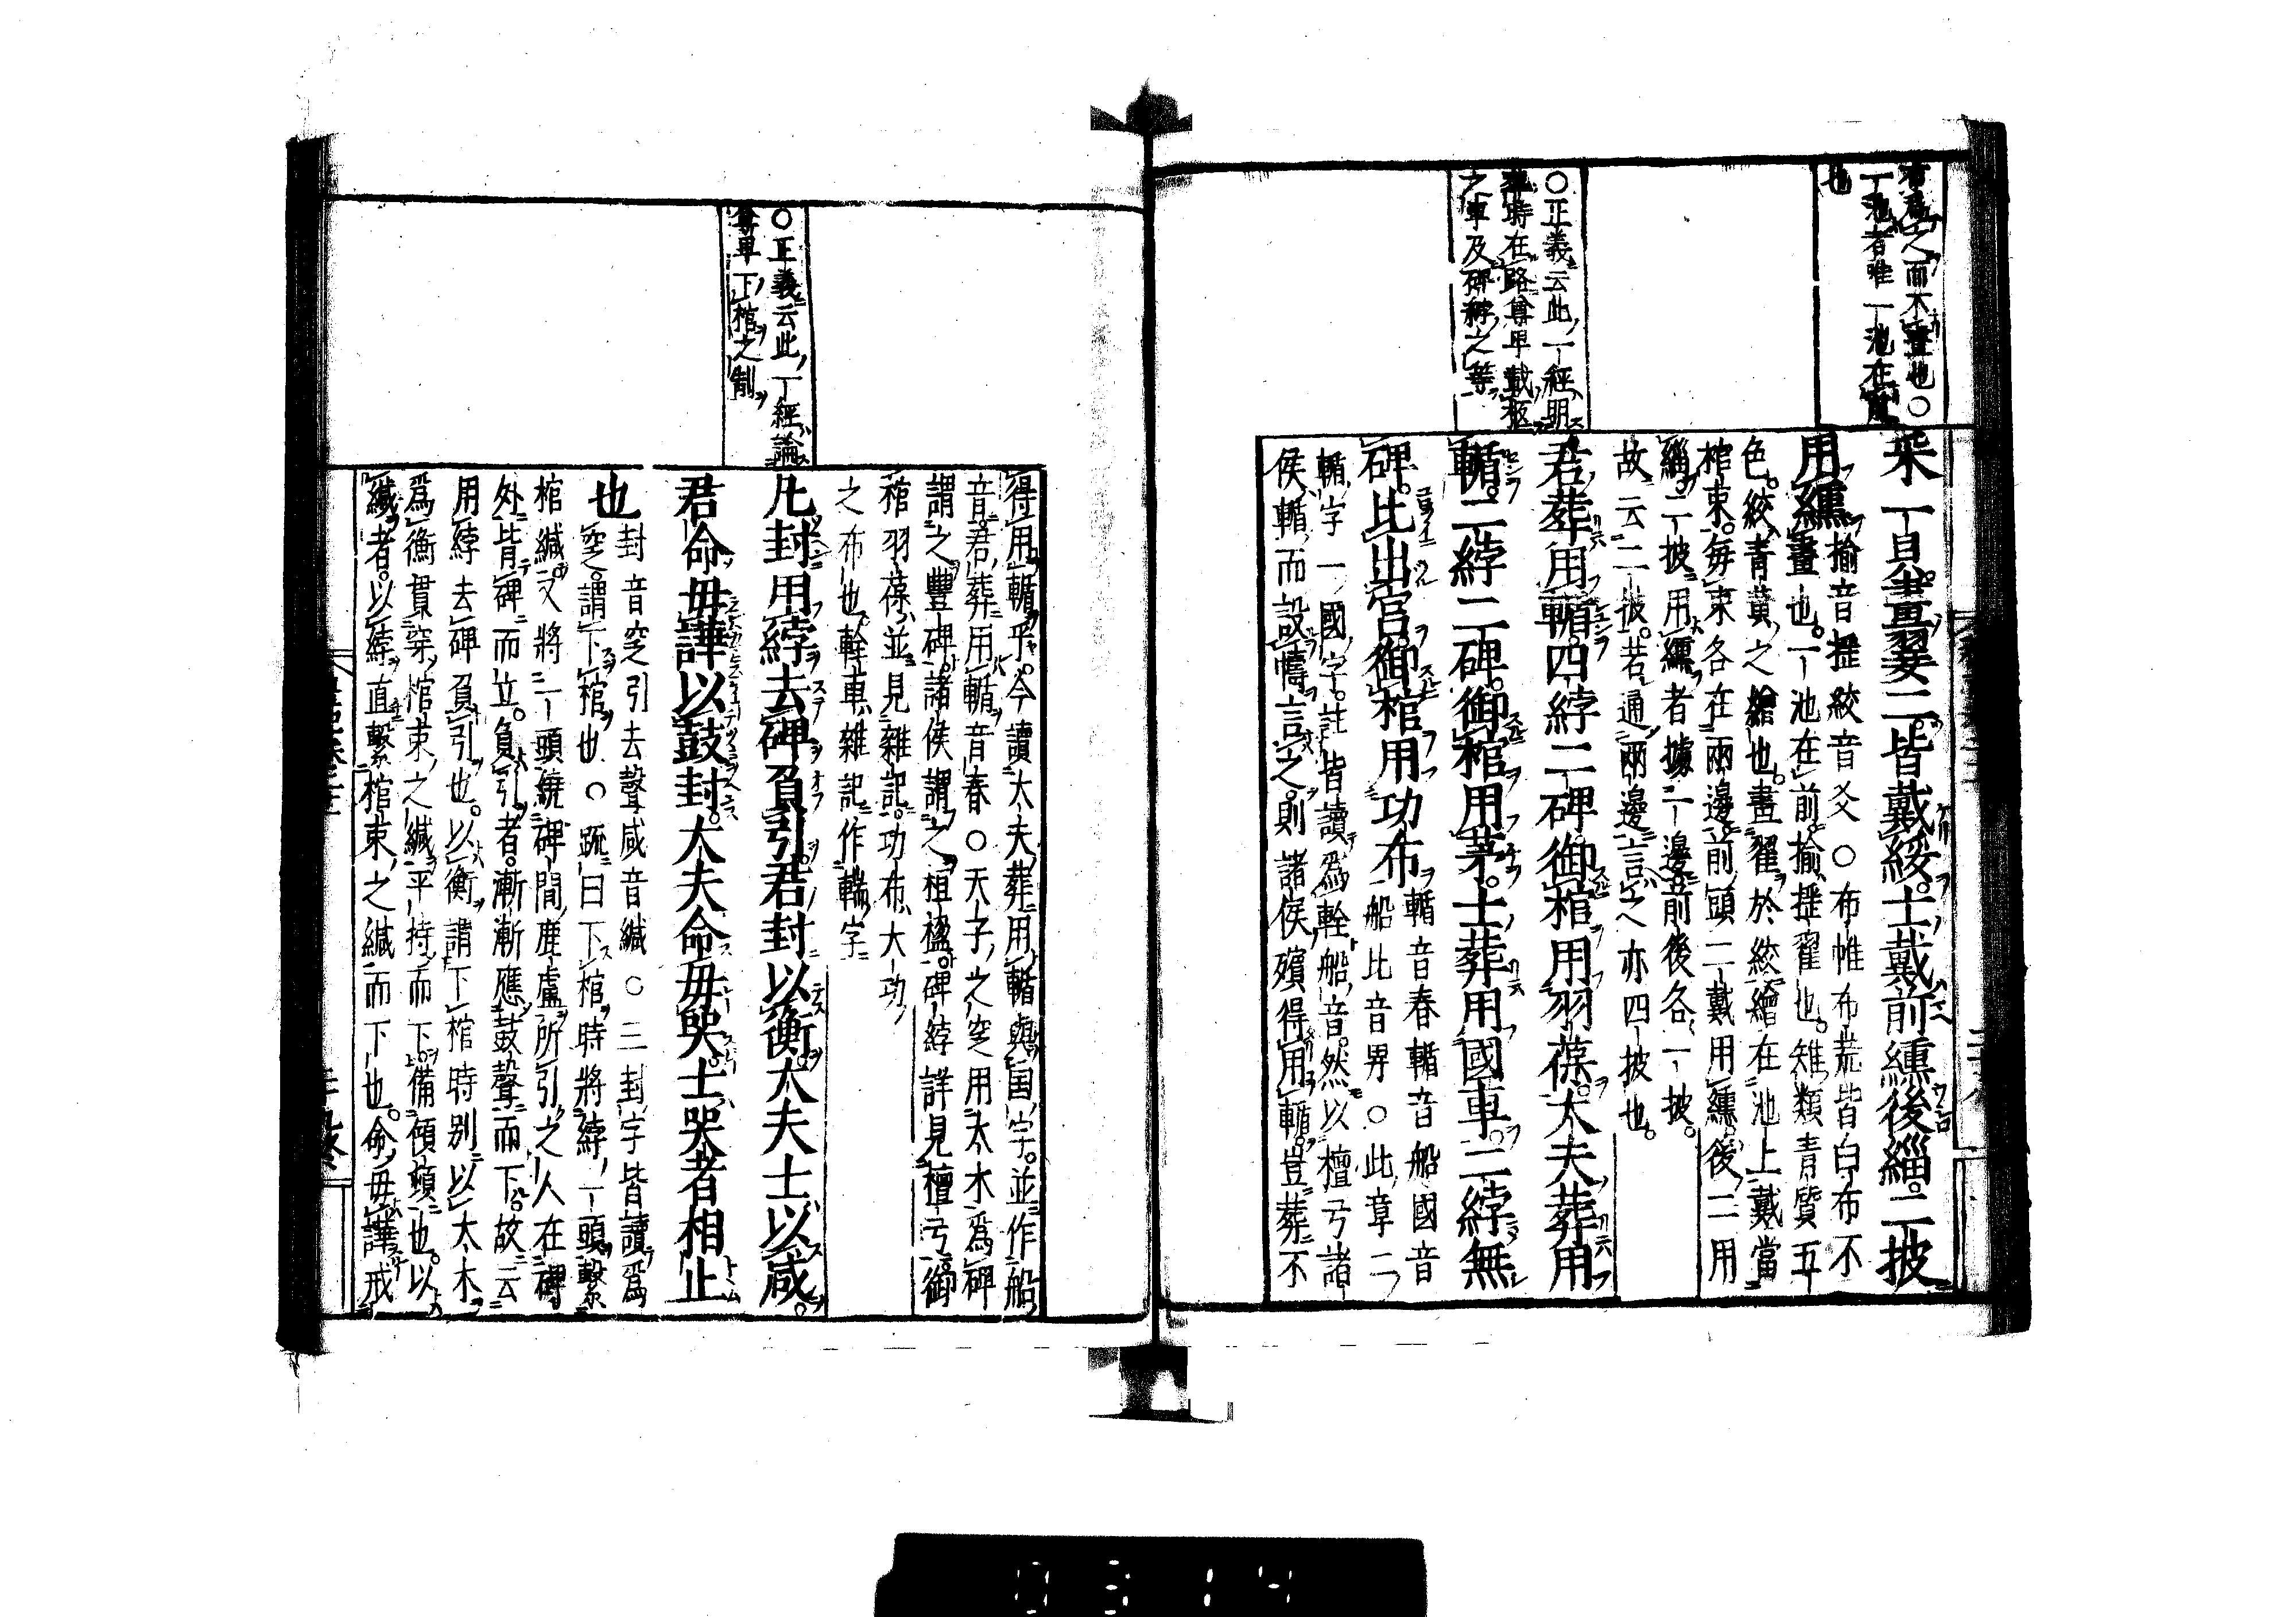 者君之而不畫也○
一池者唯一池在前
也
采一貝畫翣二皆戴綏士戴前纁後緇二披
用纁 揄音搖絞音爻○布帷布荒皆白布不
畫也一池在前揄搖翟也雉類青質五
色絞青黃之繒也畫翟於絞繒在池上戴當
棺束每束各在兩邊前頭二戴用纁後二用
緇二披用纁者據一邊前後各一披
故云二披若通兩邊言之亦四披也
○正義云此一經明
葬時在路尊卑載柩
之車及碑綍之等
君葬用輴四綍二碑御棺用羽葆大夫葬用
輴二綍二碑御棺用茅士葬用國車二綍無
碑比出宮御棺用功布 輴音春輴音船國音
船比音畀○此章二
輴字一國字註皆讀爲輇船音然以檀弓諸
侯輴而設幬言之則諸侯殯得用輴豈葬不
得用輴乎今讀大夫葬用輴與国字並作船
音君葬用輴音春○天子之窆用大木爲碑
謂之豐碑諸侯謂之桓楹碑綍詳見檀弓御
棺羽葆並見雜記功布大功
之布也輇車雜記作輲字
○正義云此一經論
尊卑下棺之制
凡封用綍去碑負引君封以衡大夫士以咸
君命毋譁以鼓封大夫命毋哭士哭者相止
也 封音窆引去聲咸音緘○三封字皆讀爲
窆謂下棺也○疏曰下棺時將綍一頭繫
棺緘又將一頭繞碑間鹿盧所引之人在碑
外皆碑而立負引者漸漸應鼓聲而下故云
用綍去碑負引也以衡謂下棺時別以大木
爲衡貫穿棺束之緘平持而下備傾頹也以
緘者以綍直繫棺束之緘而下也命毋譁戒